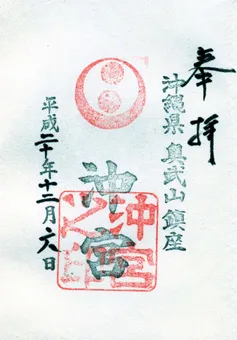 奉拝
沖縄県 奥武山鎮座
沖宮
平成二十年十二月六日
沖宮之印